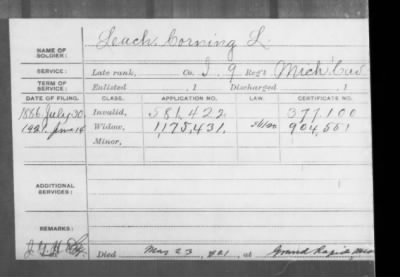 NAME OF SOLDIER: Leach, Corning L.
SERVICE: Late rank, Co. I, 9 Reg't Mich. Cav.
TERM OF SERVICE: Enlisted , 1 Discharged , 1
DATE OF FILING. CLASS. APPLICATION NO. LAW. CERTIFICATE NO.
1886 July 30 Invalid, 581,422 377,100
1921 Widow, 1,175,431.
Minor,
ADDITIONAL SERVICES:
REMARKS:
Died , 1921, at Grand Rapids, Mich